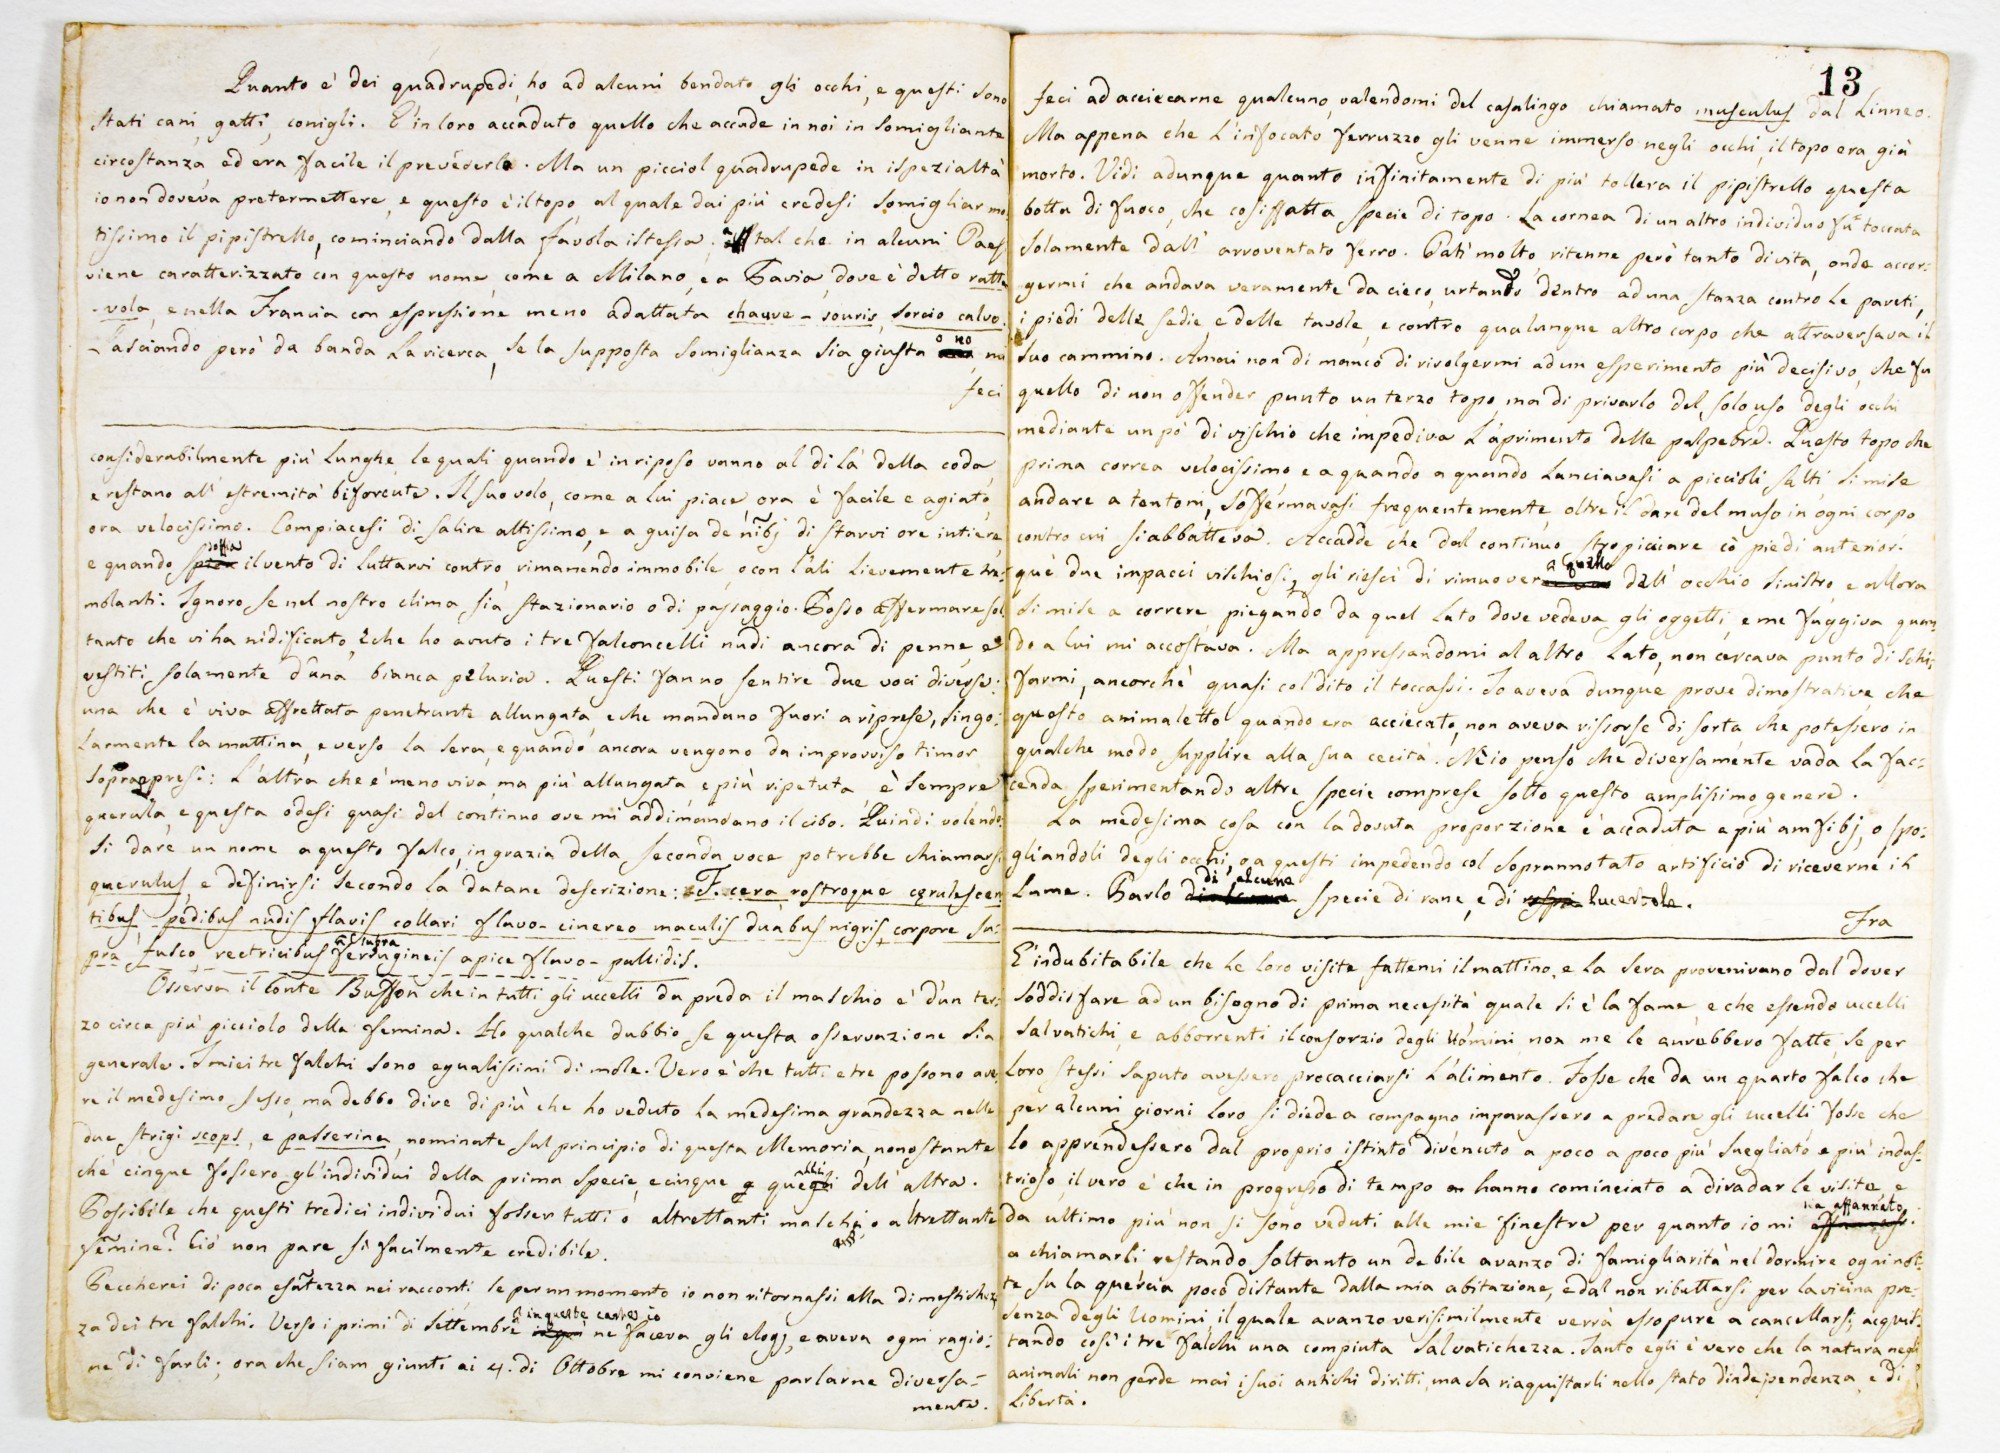 Quanto e' dei quadrupedi, ho ad alcuni bendato gli occhi, e questi sono
stati cani, gatti, conigli. E' in loro accaduto quello che accade in noi in somigliante
circostanza, ed era facile il prevederlo. Ma un picciol quadrupede in ispezialtà
io non doveva pretermettere, e questo è il topo, al quale dai più credesi somigliar mol
tissimo il pipistrello, cominciando dalla favola istessa: a tal che in alcuni Paesi
viene caratterizzato con questo nome, come a Milano, e a Pavia, dove è detto ratte
-vola, e nella Francia con espressione meno adattata chauve-souris, sorcio calvo.
Lasciando però da banda la ricerca, se la supposta somiglianza sia giusta o no, mi
feci
considerabilmente più lunghe, le quali quando è in riposo vanno al di là della coda,
e restano all' estremità biforcute. Il suo volo, come a lui piace, ora è facile e agiato,
ora velocissimo. Compiacesi di salire altissimo, e a guisa de' nibj di starvi ore intiere,
e quando soffia il vento di luttarvi contro, rimanendo immobile, o con l'ali lievemente tre-
molanti. Ignoro se nel nostro clima sia stazionario o di passaggio. Posso affermare sol
tanto che vi ha nidificato, e che ho avuto i tre falconcelli nudi ancora di penne, e
vestiti solamente d'una bianca peluria. Questi fanno sentire due voci diverse:
una che è viva affrettata penetrante allungata, e che mandano fuori a riprese, singo-
larmente la mattina, e verso la sera, e quando ancora vengono da improvviso timor
soprappresi: L'altra che è meno viva, ma più allungata, e più ripetuta, è sempre
querula, e questa odesi quasi del continuo ove mi addimandano il cibo. Quindi volendo-
si dare un nome a questo falco, in grazia della seconda voce potrebbe chiamarsi
querulus, e definirsi secondo la datane descrizione: F. cera rostroque cærulescen
tibus pedibus nudis flavis collari flavo-cinereo maculis duabus nigris, corpore su-
pra fusco rectricibus a supra ferrugineis apice flavo-pallidis.
Osserva il Conte Buffon che in tutti gli uccelli da preda il maschio e' d'un ter-
zo circa più picciolo della femina. Ho qualche dubbio se questa osservazione sia
generale. I miei tre falchi sono egualissimi di mole. Vero è che tutti e tre possono ave-
re il medesimo sesso, ma debbo dire di più che ho veduto la medesima grandezza nelle
due strigi scops, e passerina, nominate sul principio di questa Memoria, nonostante
che cinque fossero gl'individui della prima specie, e cinque quelli dell'altra.
Possibile che questi tredici individui fosser tutti o altrettanti maschi, o altrettante
femine? Ciò non pare sì facilmente credibile.
Peccherei di poca esatezza nei racconti se per un momento io non ritornassi alla dimestichez
za dei tre falchi. Verso i primi di Settembre in queste carte io ne faceva gli elogj, e aveva ogni ragio-
ne di farli; ora che siam giunti ai 4. di Ottobre mi conviene parlarne diversa-
mente.
13
feci ad acciecarne qualcuno, valendomi del casalingo chiamato musculus dal Linneo.
Ma appena che l'infocato ferruzzo gli venne immerso negli occhi, il topo era già
morto. Vidi adunque quanto infinitamente di più tollera il pipistrello questa
botta di fuoco, che cosiffatta specie di topo. La cornea di un altro individuo fu toccata
solamente dall' arroventato ferro. Patì molto, ritenne però tanto di vita, onde accor-
germi che andava veramente da cieco, urtando dentro ad una stanza contro le pareti,
i piedi delle sedie, e delle tavole, e contro qualunque altro corpo che attraversava il
suo cammino. Amai non di manco di rivolgermi ad un esperimento più decisivo, che fu
quello di non offender punto un terzo topo, ma di privarlo del solo uso degli occhi
mediante un pò di vischio che impediva l'aprimento delle palpebre. Questo topo che
prima correa velocissimo, e a quando a quando lanciavasi a piccioli salti si mise
andare a tentoni, soffermavasi frequentemente, oltre il dare del muso in ogni corpo
contro cui si abbatteva. Accadde che dal continuo stropicciare cò piedi anteriori
què due impacci vischiosi, gli riescì di rimuover quello dell' occhio sinistro e allora
si mise a correre, piegando da quel lato dove vedeva gli oggetti, e me fuggiva quan-
do a lui mi accostava. Ma appressandomi al altro lato, non cercava punto di schi-
farmi, ancorchè quasi col dito il toccassi. Io aveva dunque prove dimostrative, che
questo animaletto quando era acciecato, non aveva rissorse di sorta che potessero in
qualche modo supplire alla sua cecità. Nè io penso che diversamente vada la fac-
cenda sperimentando altre specie comprese sotto questo amplissimo genere.
La medesima cosa con la dovuta proporzione è accaduta a più amfibj, o spo-
gliandoli degli occhi, o a questi impedendo col soprannotato artificio di riceverne il
lume. Parlo di alcune specie di rane, e di lucertole.
Fra
E' indubitabile che le loro visite fattemi il mattino, e la sera provenivano dal dover
soddisfare ad un bisogno di prima necessità quale si è la fame, e che essendo uccelli
salvatichi, e abborrenti il consorzio degli Uomini, non me le avrebbero fatte, se per
loro stessi saputo avessero procacciarsi l'alimento. Fosse che da un quarto falco che
per alcuni giorni loro si diede a compagno imparassero a predare gli uccelli, fosse che
lo apprendessero dal proprio istinto divenuto a poco a poco più svegliato e più indus-
trioso, il vero è che in progresso di tempo hanno cominciato a diradar le visite, e
da ultimo più non si sono veduti alle mie finestre per quanto io mi sia affannato
a chiamarli, restando soltanto un debile avanzo di famigliarità nel dormire ogni not-
te su la quercia poco distante dalla mia abitazione, e dal non ributtarsi per la vicina pre-
senza degli Uomini, il quale avanzo verisimilmente verrà essopure a cancellarsi, acquis-
tando così i tre falchi una compiuta salvatichezza. Tanto egli è vero che la natura negli
animali non perde mai i suoi antichi diritti, ma sa riaquistarli nello stato d'independenza, e di
libertà.